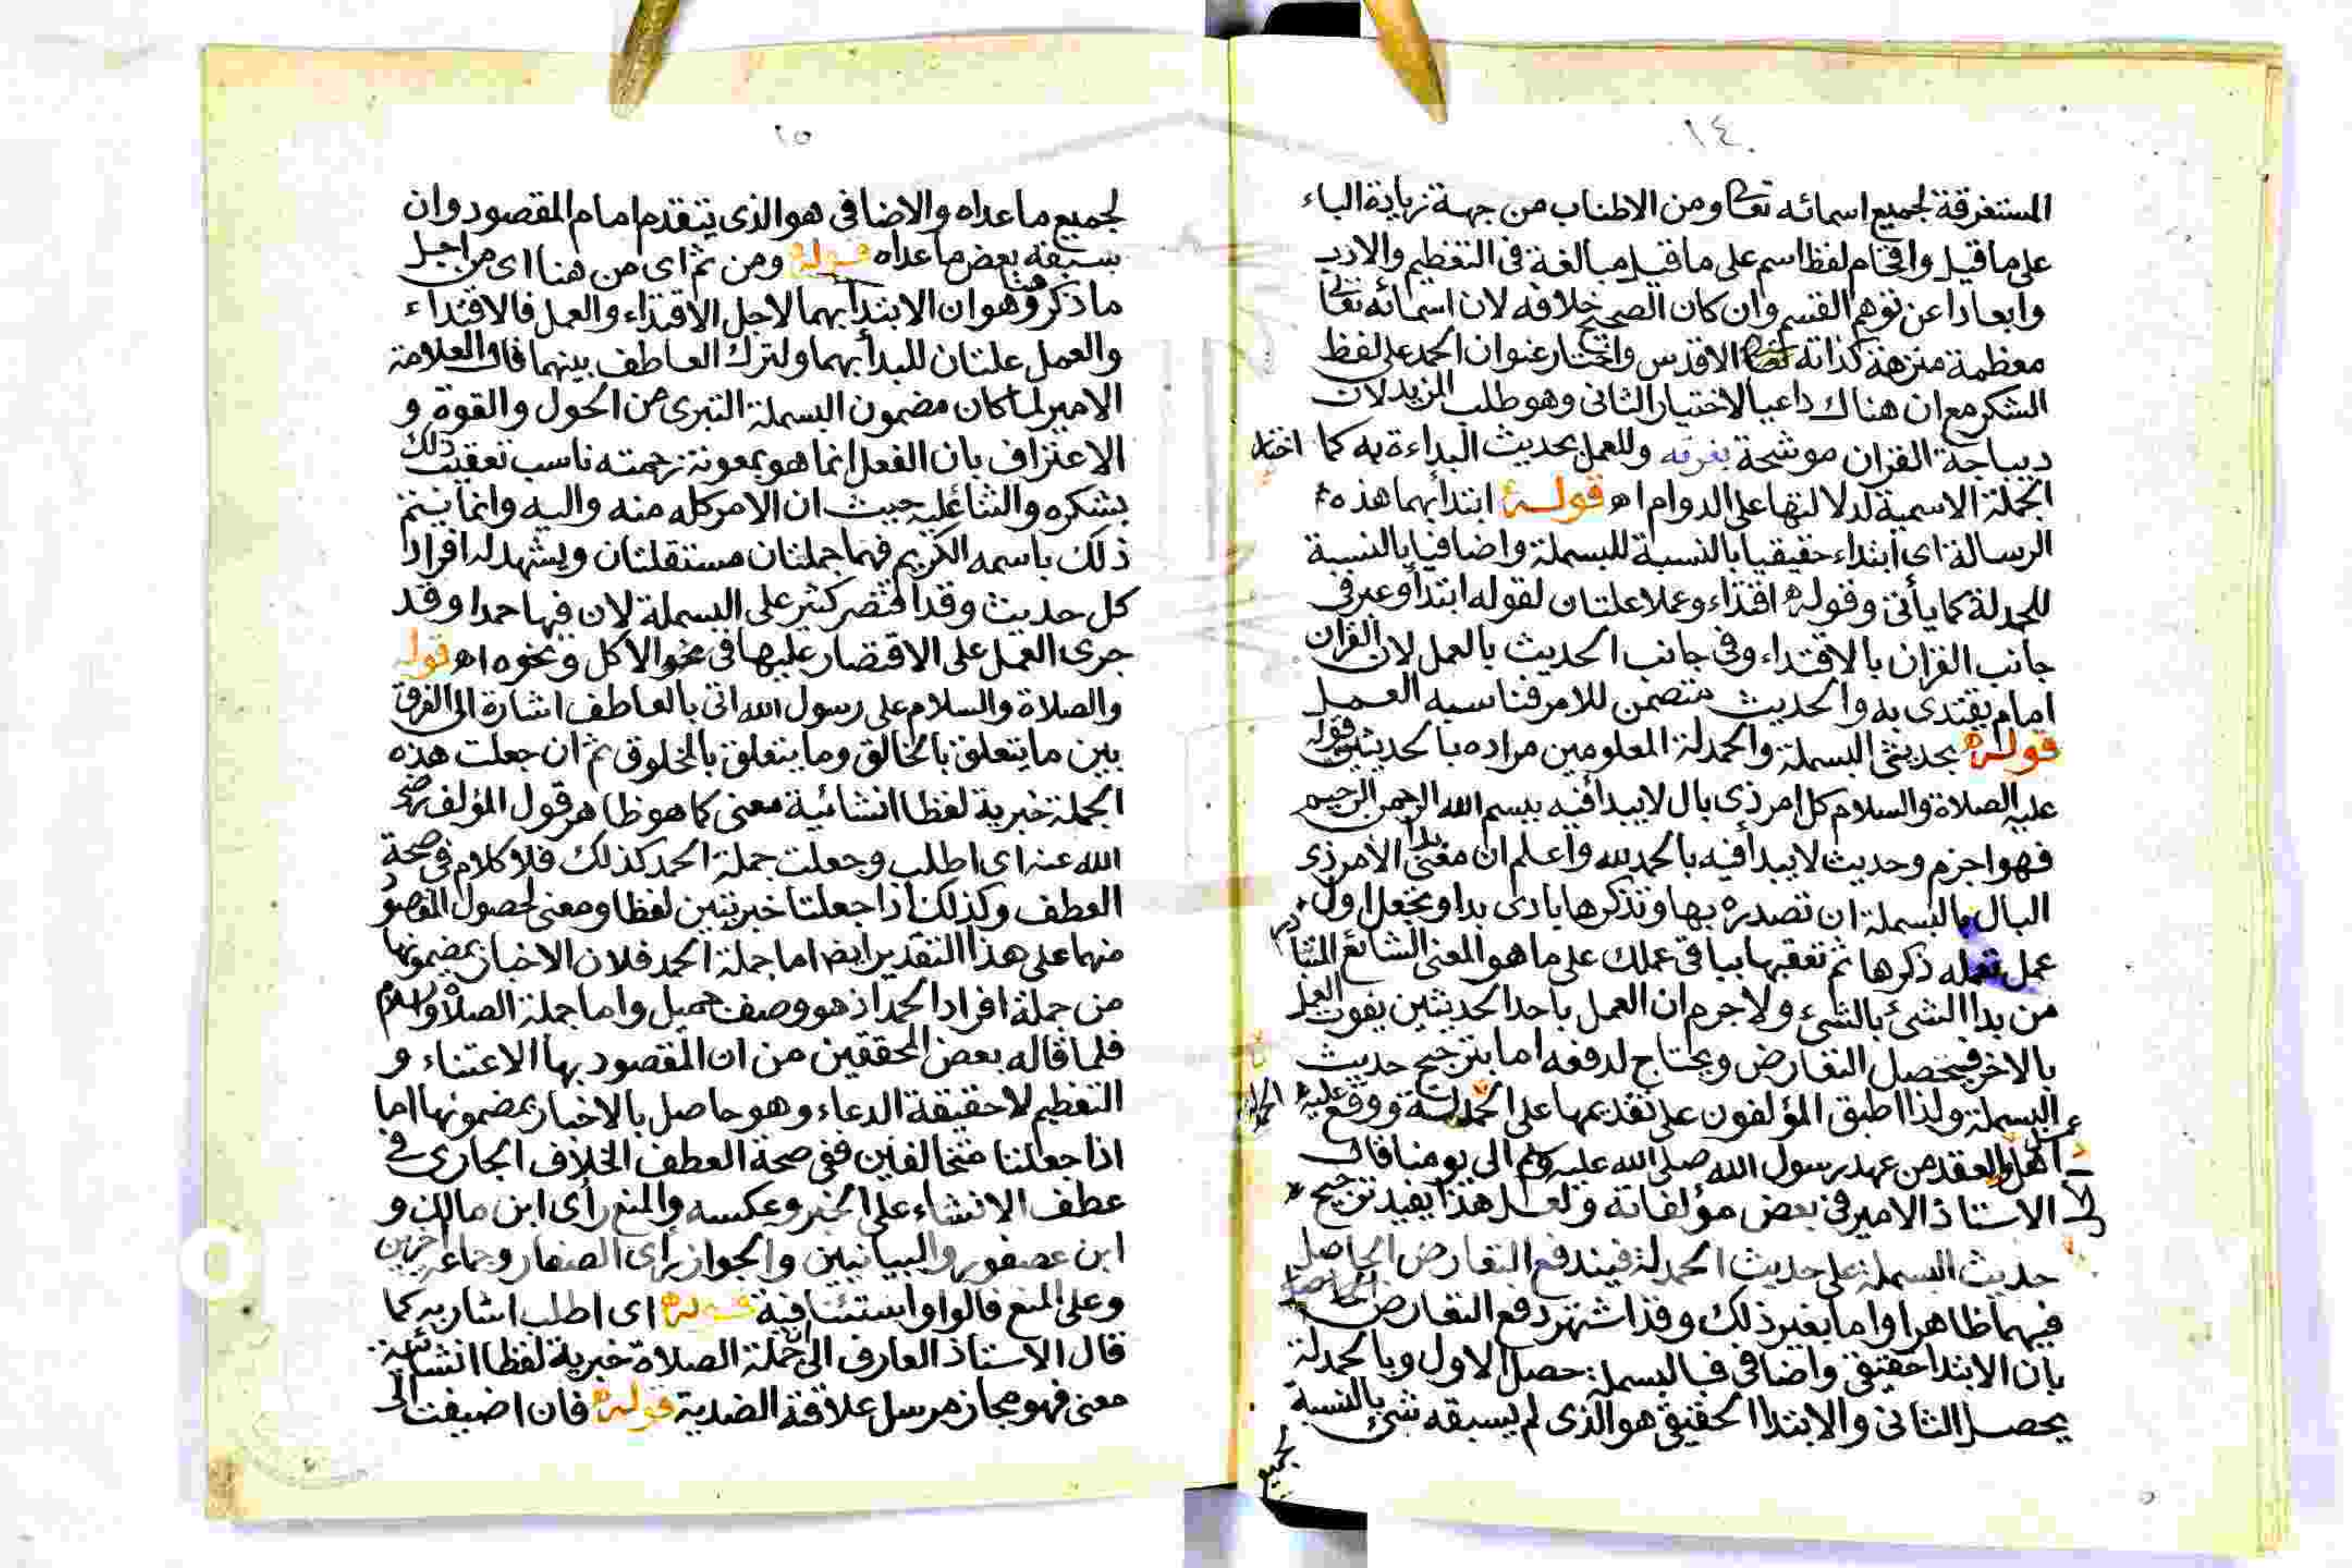 ١٤
المستغرقة لجميع اسمائه تعالى ومن الاطناب من جهة زيادة الباء
على ما قيل واقحام لفظ اسم على ما قيل مبالغة فى التعظيم والادب
وابعادا عن توهم القسم وان كان الصحيح خلافه لان اسمائه تعالى
معظمة منزهة كذاته الاقدس واختار عنوان الحمد على لفظ
الشكر مع ان هناك داعيا لاختيار الثانى وهو طلب المزيد لان
ديباجة القران موشحة بغرفه وللعمل بحديث البداءة به كما اختار
الجملة الاسمية لدلالتها على الدوام اه قوله ابتدأ بهما هذه
الرسالة اى ابتداء حقيقيا بالنسبة للبسملة واضافيا بالنسبة
للحمدلة كما يأتى وقوله اقتداء وعملا علتان لقوله ابتدأ وعبر فى
جانب القران بالاقتداء وفى جانب الحديث بالعمل لان القران
امام يقتدى به والحديث متضمن للامر فناسبه العمل
قوله بحديثى البسملة والحمدلة المعلومين مراده بالحديثين قوله
عليه الصلاة والسلام كل امر ذى بال لا يبدأ فيه ببسم الله الرحمن الرحيم
فهو اجزم وحديث لا يبدأ فيه بالحمد لله واعلم ان معنى بدأ الامر ذى
البال بالبسملة ان تصدره بها وتذكرها بادى بدا وتجعل اول
عمل تعمله ذكرها ثم تعقبها بباقى عملك على ما هو المعنى الشائع المتبادر
من بدا الشئ بالشئ ولا جرم ان العمل باحد الحديثين يفوت العمل
بالاخر فيحصل التعارض ويحتاج لدفعه اما بترجيح حديث
البسملة ولذا اطبق المؤلفون على تقديمها على الحمدلة ووقع عليه
اهل العقد من عهد رسول الله صلى الله عليه وسلم الى يومنا قال
الاستاذ الامير فى بعض مؤلفاته ولعل هذا يفيد ترجيح
حديث البسملة على حديث الحمدلة فيندفع التعارض الحاصل
فيهما ظاهرا واما بغير ذلك وقد اشتهر دفع التعارض
بان الابتدا حقيقى واضافى فبالبسملة حصل الاول وبالحمدلة
يحصل الثانى والابتدا الحقيقى هو الذى لم يسبقه شئ بالنسبة
لجميع
١٥
لجميع ما عداه والاضافى هو الذى يتقدم امام المقصود وان
سبقه بعض ما عداه قوله ومن ثم اى من هنا اى من اجل
ما ذكر وهو ان الابتدا بهما لاجل الاقتداء والعمل فالاقتداء
والعمل علتان للبدأ بهما ولترك العاطف بينهما قال العلامة
الامير لما كان مضمون البسملة التبرى من الحول والقوة و
الاعتراف بان الفعل انما هو بمعونة رحمته ناسب تعقيب ذلك
بشكره والثنا عليه حيث ان الامر كله منه واليه وانما يتم
ذلك باسمه الكريم فهما جملتان مستقلتان ويشهد له افراد
كل حديث وقد اقتصر كثير على البسملة لان فيها حمدا وقد
جرى العمل على الاقتصار عليها فى نحو الاكل ونحوه اه قوله
والصلاة والسلام على رسول الله اتى بالعاطف اشارة الى الفرق
بين ما يتعلق بالخالق وما يتعلق بالمخلوق ثم ان جعلت هذه
الجملة خبرية لفظا انشائية معنى كما هو ظاهر قول المؤلف رضى
الله عنه اى اطلب وجعلت جملة الحمد كذلك فلا كلام فى صحة
العطف وكذلك اذا جعلتا خبريتين لفظا ومعنى لحصول المقصود
منهما على هذا التقدير ايضا اما جملة الحمد فلان الاخبار بمضمونها
من جملة افراد الحمد اذ هو وصف جميل واما جملة الصلاة والسلام
فلما قاله بعض المحققين من ان المقصود بها الاعتناء و
التعظيم لا حقيقة الدعاء وهو حاصل بالاخبار بمضمونها اما
اذا جعلتا متخالفين ففى صحة العطف الخلاف الجارى فى
عطف الانشاء على الخبر وعكسه والمنع رأى ابن مالك و
ابن عصفور والبيانيين والجواز رأى الصفار وجماعة اخرين
وعلى المنع فالواو استئنافية قوله اى اطلب اشار به كما
قال الاستاذ العارف الى ان جملة الصلاة خبرية لفظا انشائية
معنى فهو مجاز مرسل علاقة الضدية قوله فان اضيفت الى